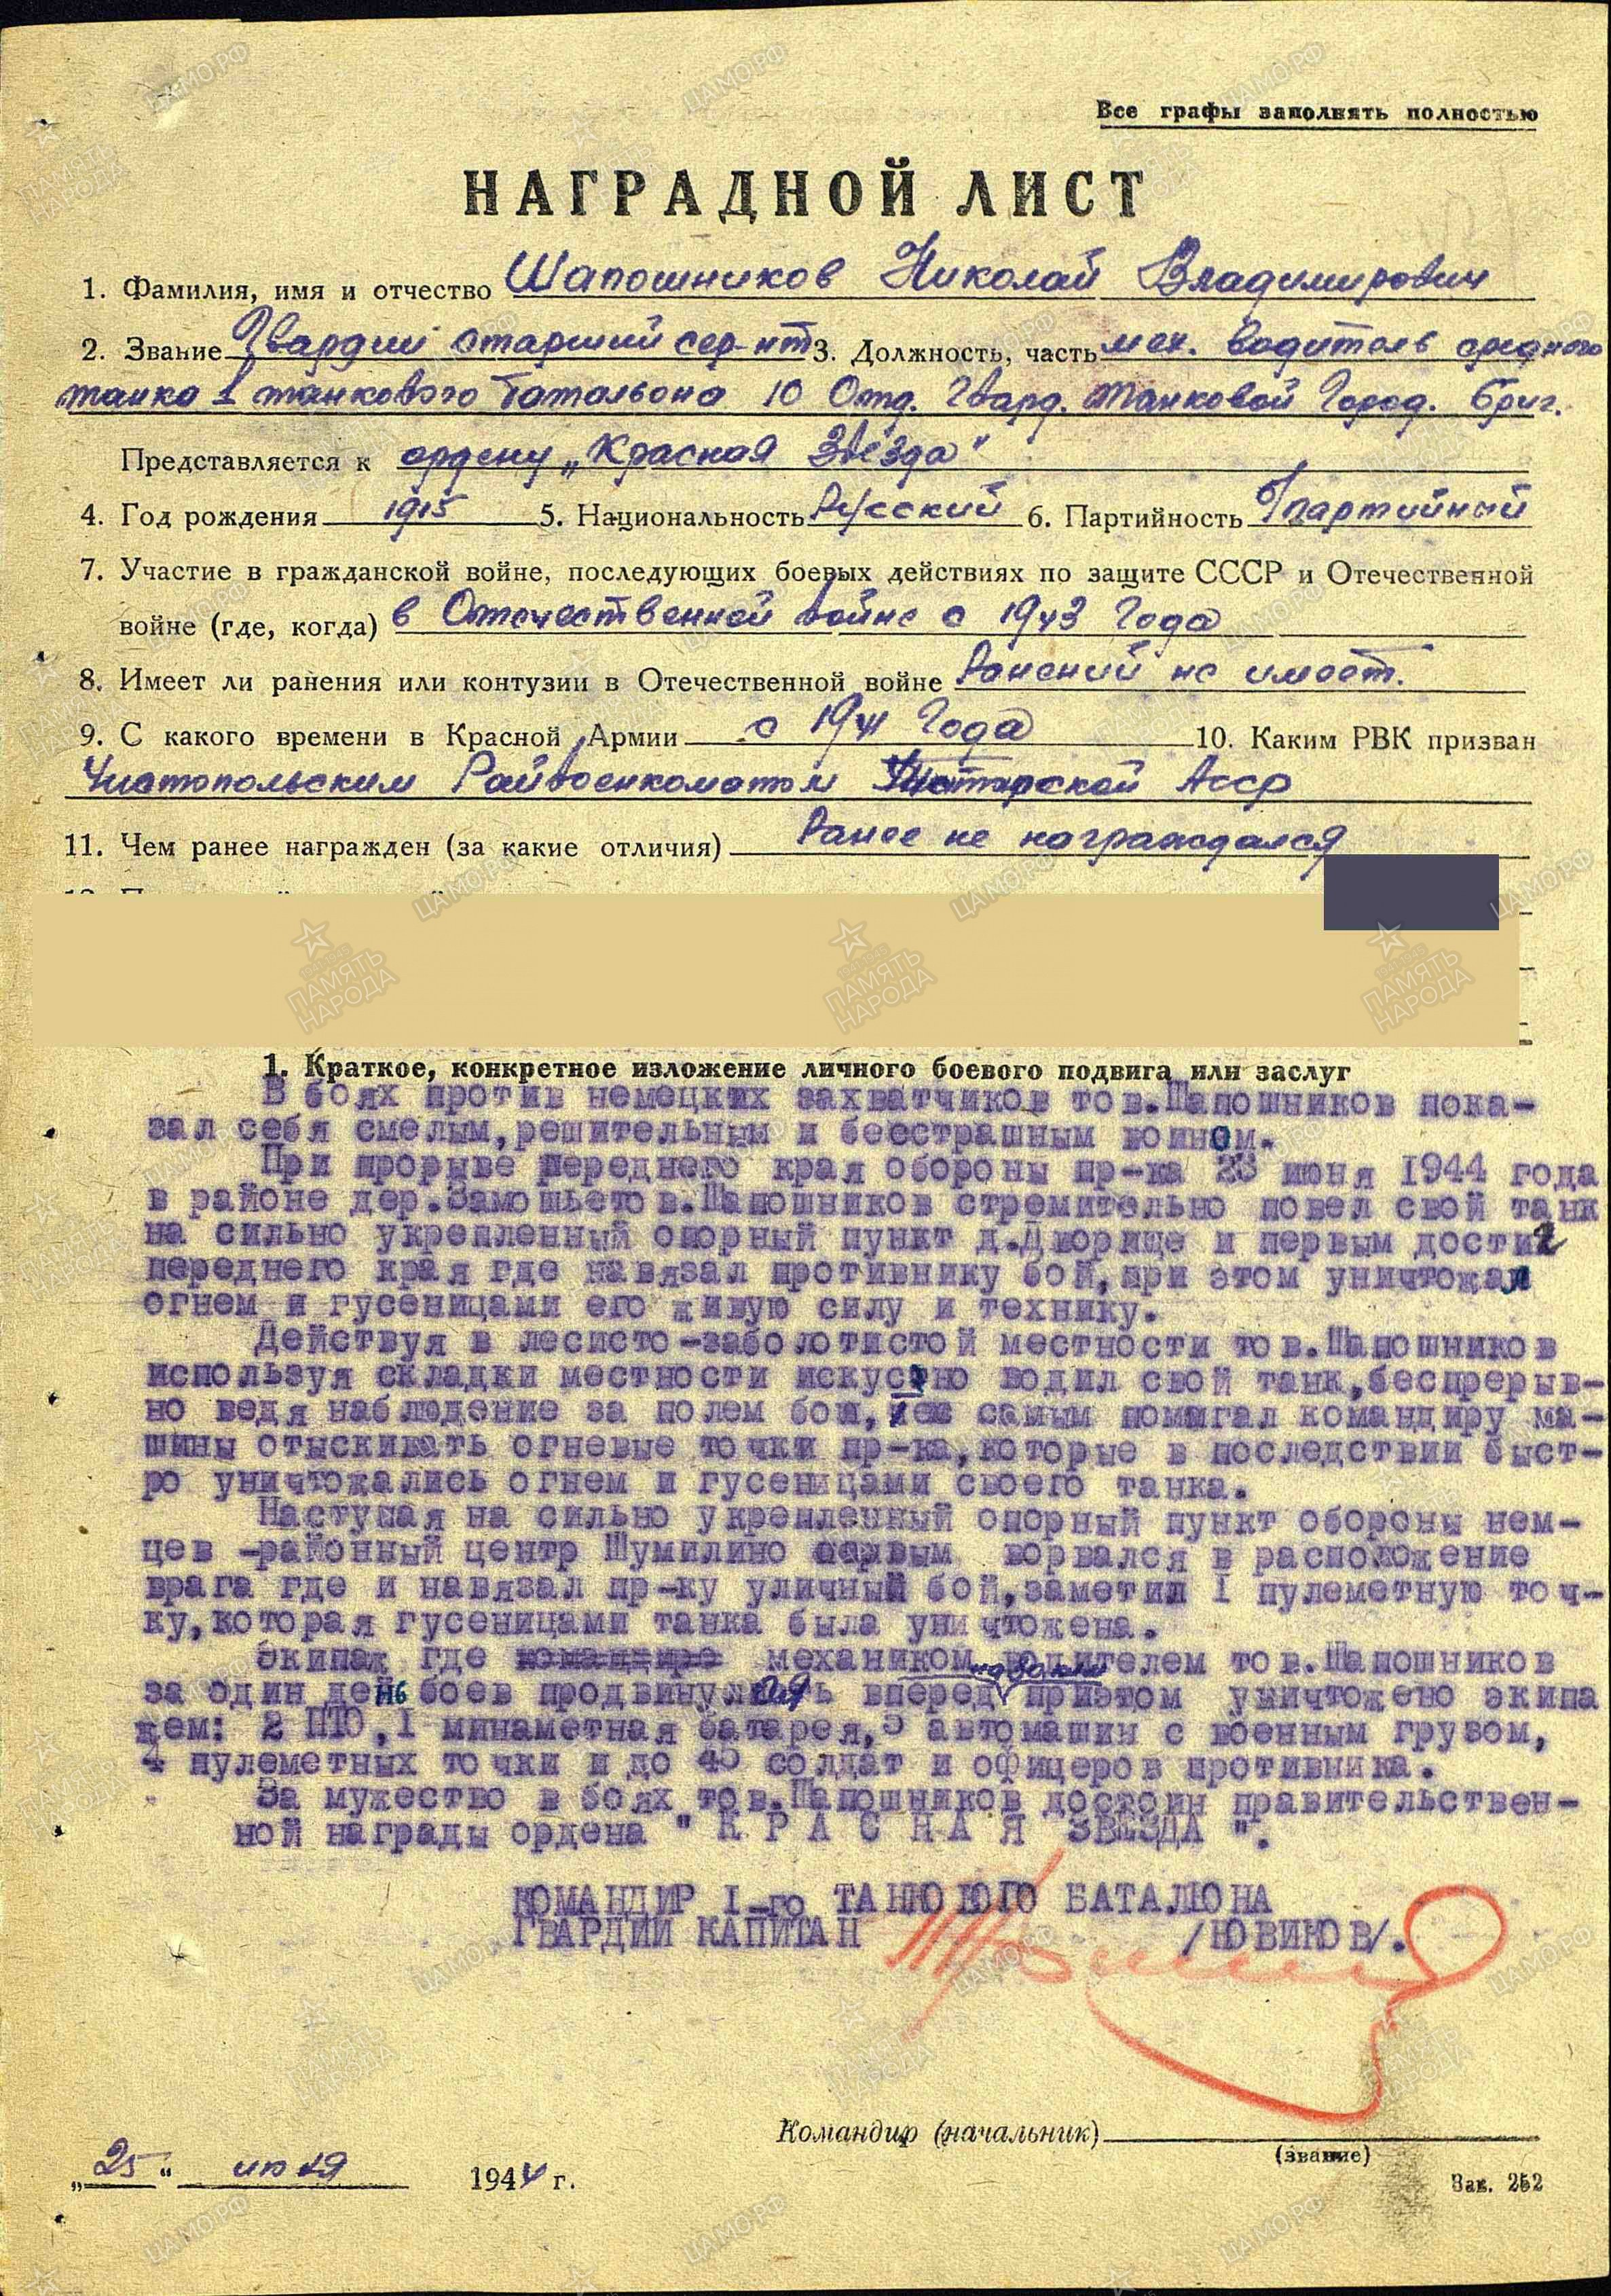 Все графы заполнять полностью
НАГРАДНОЙ ЛИСТ
1. Фамилия, имя и отчество Шапошников Николай Владимирович
2. Звание Гвардии старший сер-нт 3. Должность, часть мех. водитель среднего
танка 1 танкового батальона 10 Отд. Гвард. Танковой Город. бриг.
Представляется к ордену „Красная Звезда"
4. Год рождения 1915 5. Национальность Русский 6. Партийность
7. Участие в гражданской войне, последующих боевых действиях по защите СССР и Отечественной
войне (где, когда) в Отечественной войне с 1943 года
8. Имеет ли ранения или контузии в Отечественной войне Ранений не имеет.
9. С какого времени в Красной Армии с 1941 года 10. Каким РВК призван
Чистопольским Райвоенкоматом Татарской Асср
11. Чем ранее награжден (за какие отличия) Ранее не награждался
1. Краткое, конкретное изложение личного боевого подвига или заслуг
В боях против немецких захватчиков тов.Шапошников пока-
зал себя смелым,решительным и бесстрашным воином.
При прорыве переднего края обороны пр-ка 23 июня 1944 года
в районе дер.Замошье тов.Шапошников стремительно повел свой танк
на сильно укрепленный опорный пункт д.Дворище и первым достиг
переднего края где навязал противнику бой,при этом уничтожал
огнем и гусеницами его живую силу и технику.
Действуя в лесисто-заболотистой местности тов.Шапошников
используя складки местности искусно водил свой танк,беспрерыв-
но ведя наблюдение за полем боя,тем самым помагал командиру ма-
шины отыскивать огневые точки пр-ка,которые в последствии быст-
ро уничтожались огнем и гусеницами своего танка.
Наступая на сильно укрепленный опорный пункт обороны нем-
цев -районный центр Шумилино первым ворвался в расположение
врага где и навязал пр-ку уличный бой,заметил I пулеметную точ-
ку,которая гусеницами танка была уничтожена.
Экипаж где механиком водителем тов.Шапошников
за один день боев продвинулся вперед приэтом уничтожено экипа
жем: 2 ПТО,I минаметная батарея,5 автомашин с военным грузом,
4 пулеметных точки и до 45 солдат и офицеров противника.
За мужество в боях тов.Шапошников достоин правительствен-
ной награды ордена " К Р А С Н А Я ЗВЕЗДА ".
КОМАНДИР I-го ТАНКОВОГО БАТАЛЬОНА
ГВАРДИИ КАПИТАН /НОВИКОВ/.
Командир (начальник)
(звание)
„25" июля 1944 г.
Зак. 252
ЦАМО.РФ
ПАМЯТЬ НАРОДА